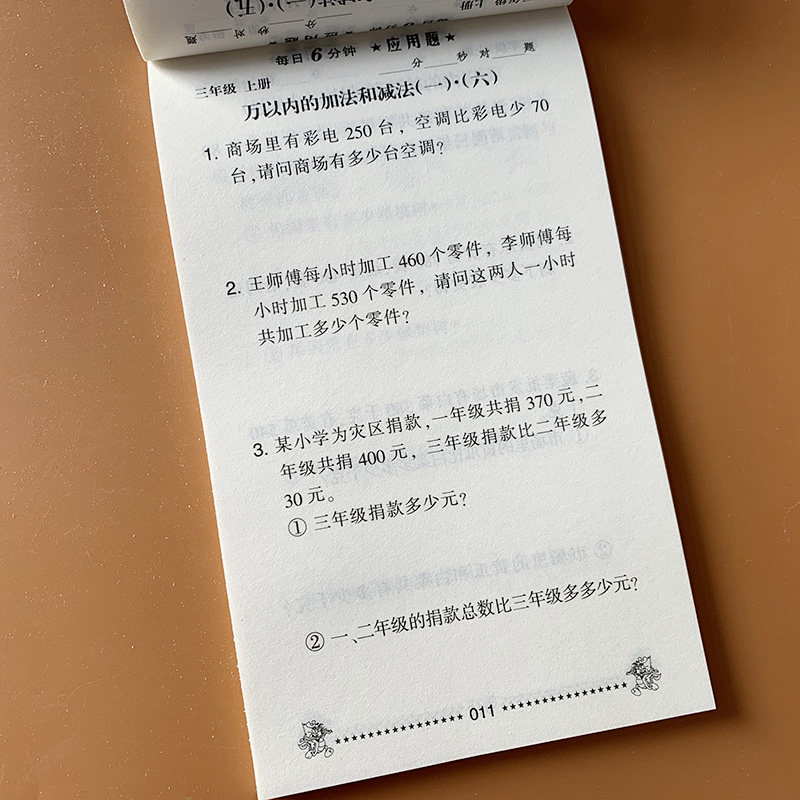 每日6分钟 ★应用题★
三年级 上册 分 秒 对 题
万以内的加法和减法(一)·(六)
1. 商场里有彩电250台，空调比彩电少70
台,请问商场有多少台空调？
2. 王师傅每小时加工460个零件，李师傅每
小时加工530个零件，请问这两人一小时
共加工多少个零件？
3. 某小学为灾区捐款,一年级共捐370元,二
年级共捐400元，三年级捐款比二年级多
30元。
① 三年级捐款多少元？
② 一、二年级的捐款总数比三年级多多少元？
011